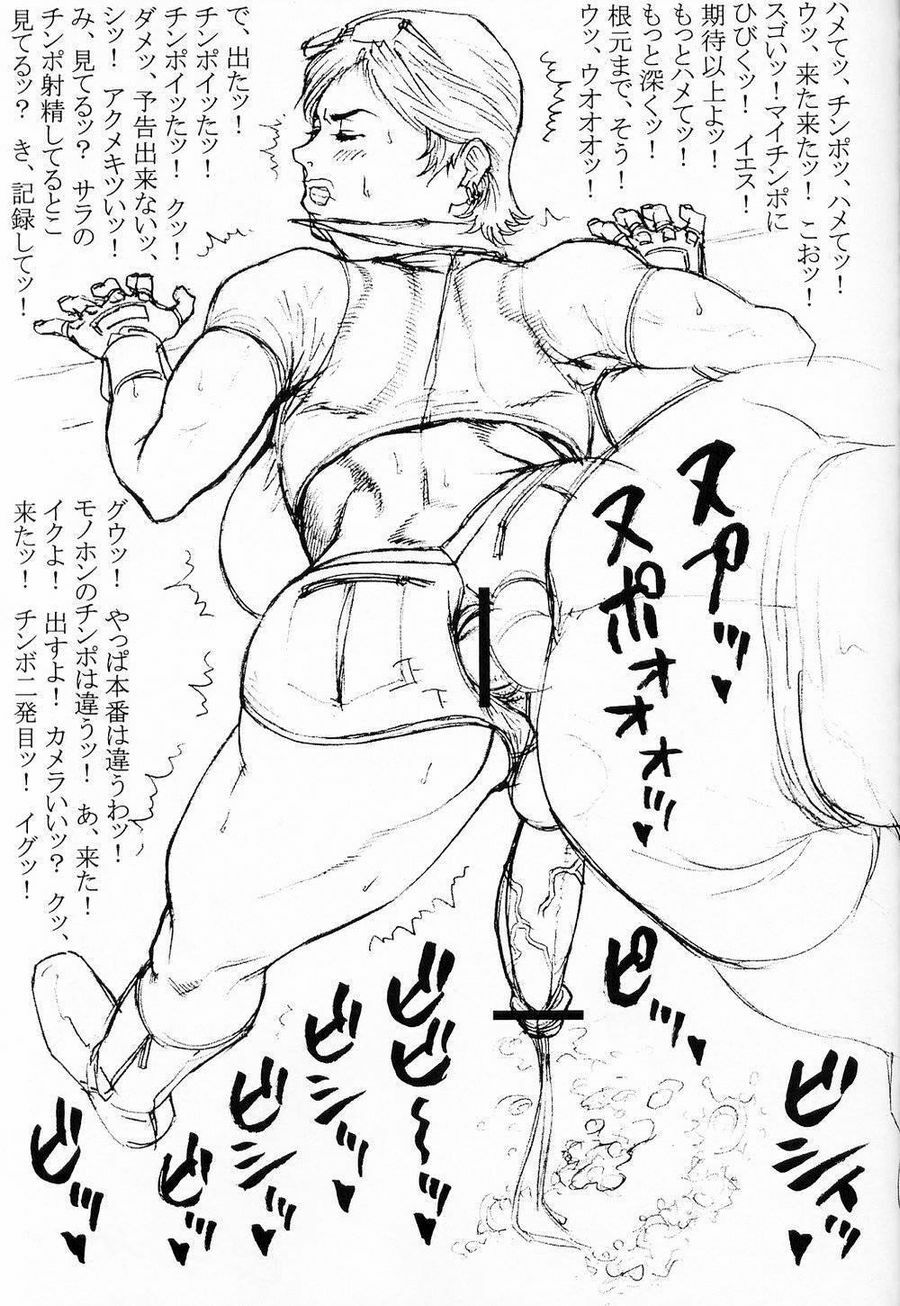 ハメてッ、チンポッ、ハメてッ！
ウッ、来た来たッ！　こおッ！
スゴいッ！マイチンポに
ひびくッ！　イエス！
期待以上よッ！
もっとハメてッ！
もっと深くッ！
根元まで、そう！
ウッ、ウオオオッ！
で、出たッ！
チンポイッたッ！
チンポイッたッ！　クッ！
ダメッ、予告出来ないッ、
シッ！　アクメキツいッ！
み、見てるッ？　サラの
チンポ射精してるとこ
見てるッ？　き、記録してッ！
ヌアッ♥
ヌポォオオッ♥
グウッ！　やっぱ本番は違うわッ！
モノホンのチンポは違うッ！　あ、来た！
イクよ！　出すよ！　カメラいいッ？　クッ、
来たッ！　チンボ二発目ッ！　イグッ！
ピッ♥
ビシィッ♥
ビビ～ッ♥
ビシッ♥
ビシッ♥
ビッ♥
ビッ♥